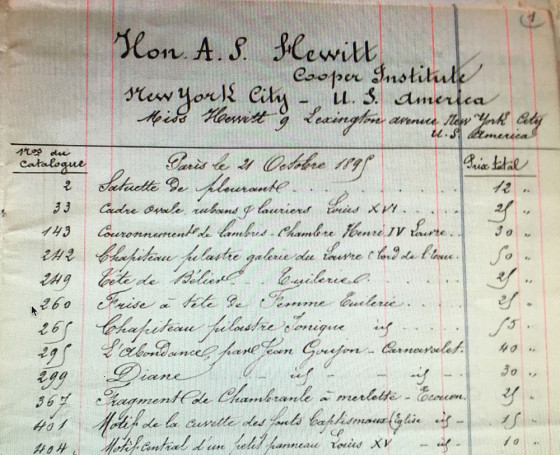 1
Hon. A. S. Hewitt
Cooper Institute
New York City - U. S. America
Miss Hewitt 9 Lexington avenue New York City
U. S. America
Nos du Catalogue Paris le 21 Octobre 1895 Prix total
2 Statuette de pleurant 12 "
33 Cadre ovale rubans & lauriers Louis XVI 25 "
143 Couronnement de lambris - Chambre Henri IV Louvre 30 "
242 Chapiteau pilastre galerie du Louvre bord de l'eau 50 "
249 Tête de Bélier Tuilerie 25 "
260 Frise à tête de Femme Tuilerie 25 "
265 Chapiteau pilastre Ionique id 55 "
295 L'Abondance par Jean Goujon - Carnavalet 40 "
299 Diane - id - - id - 30 "
367 Fragment de Chambranle à merlette - Ecouen 25 "
401 Motif de la cuvette des fonts Baptismaux (Eglise id - 15 "
404 Motif central d'un petit panneau Louis XV - id 10 "